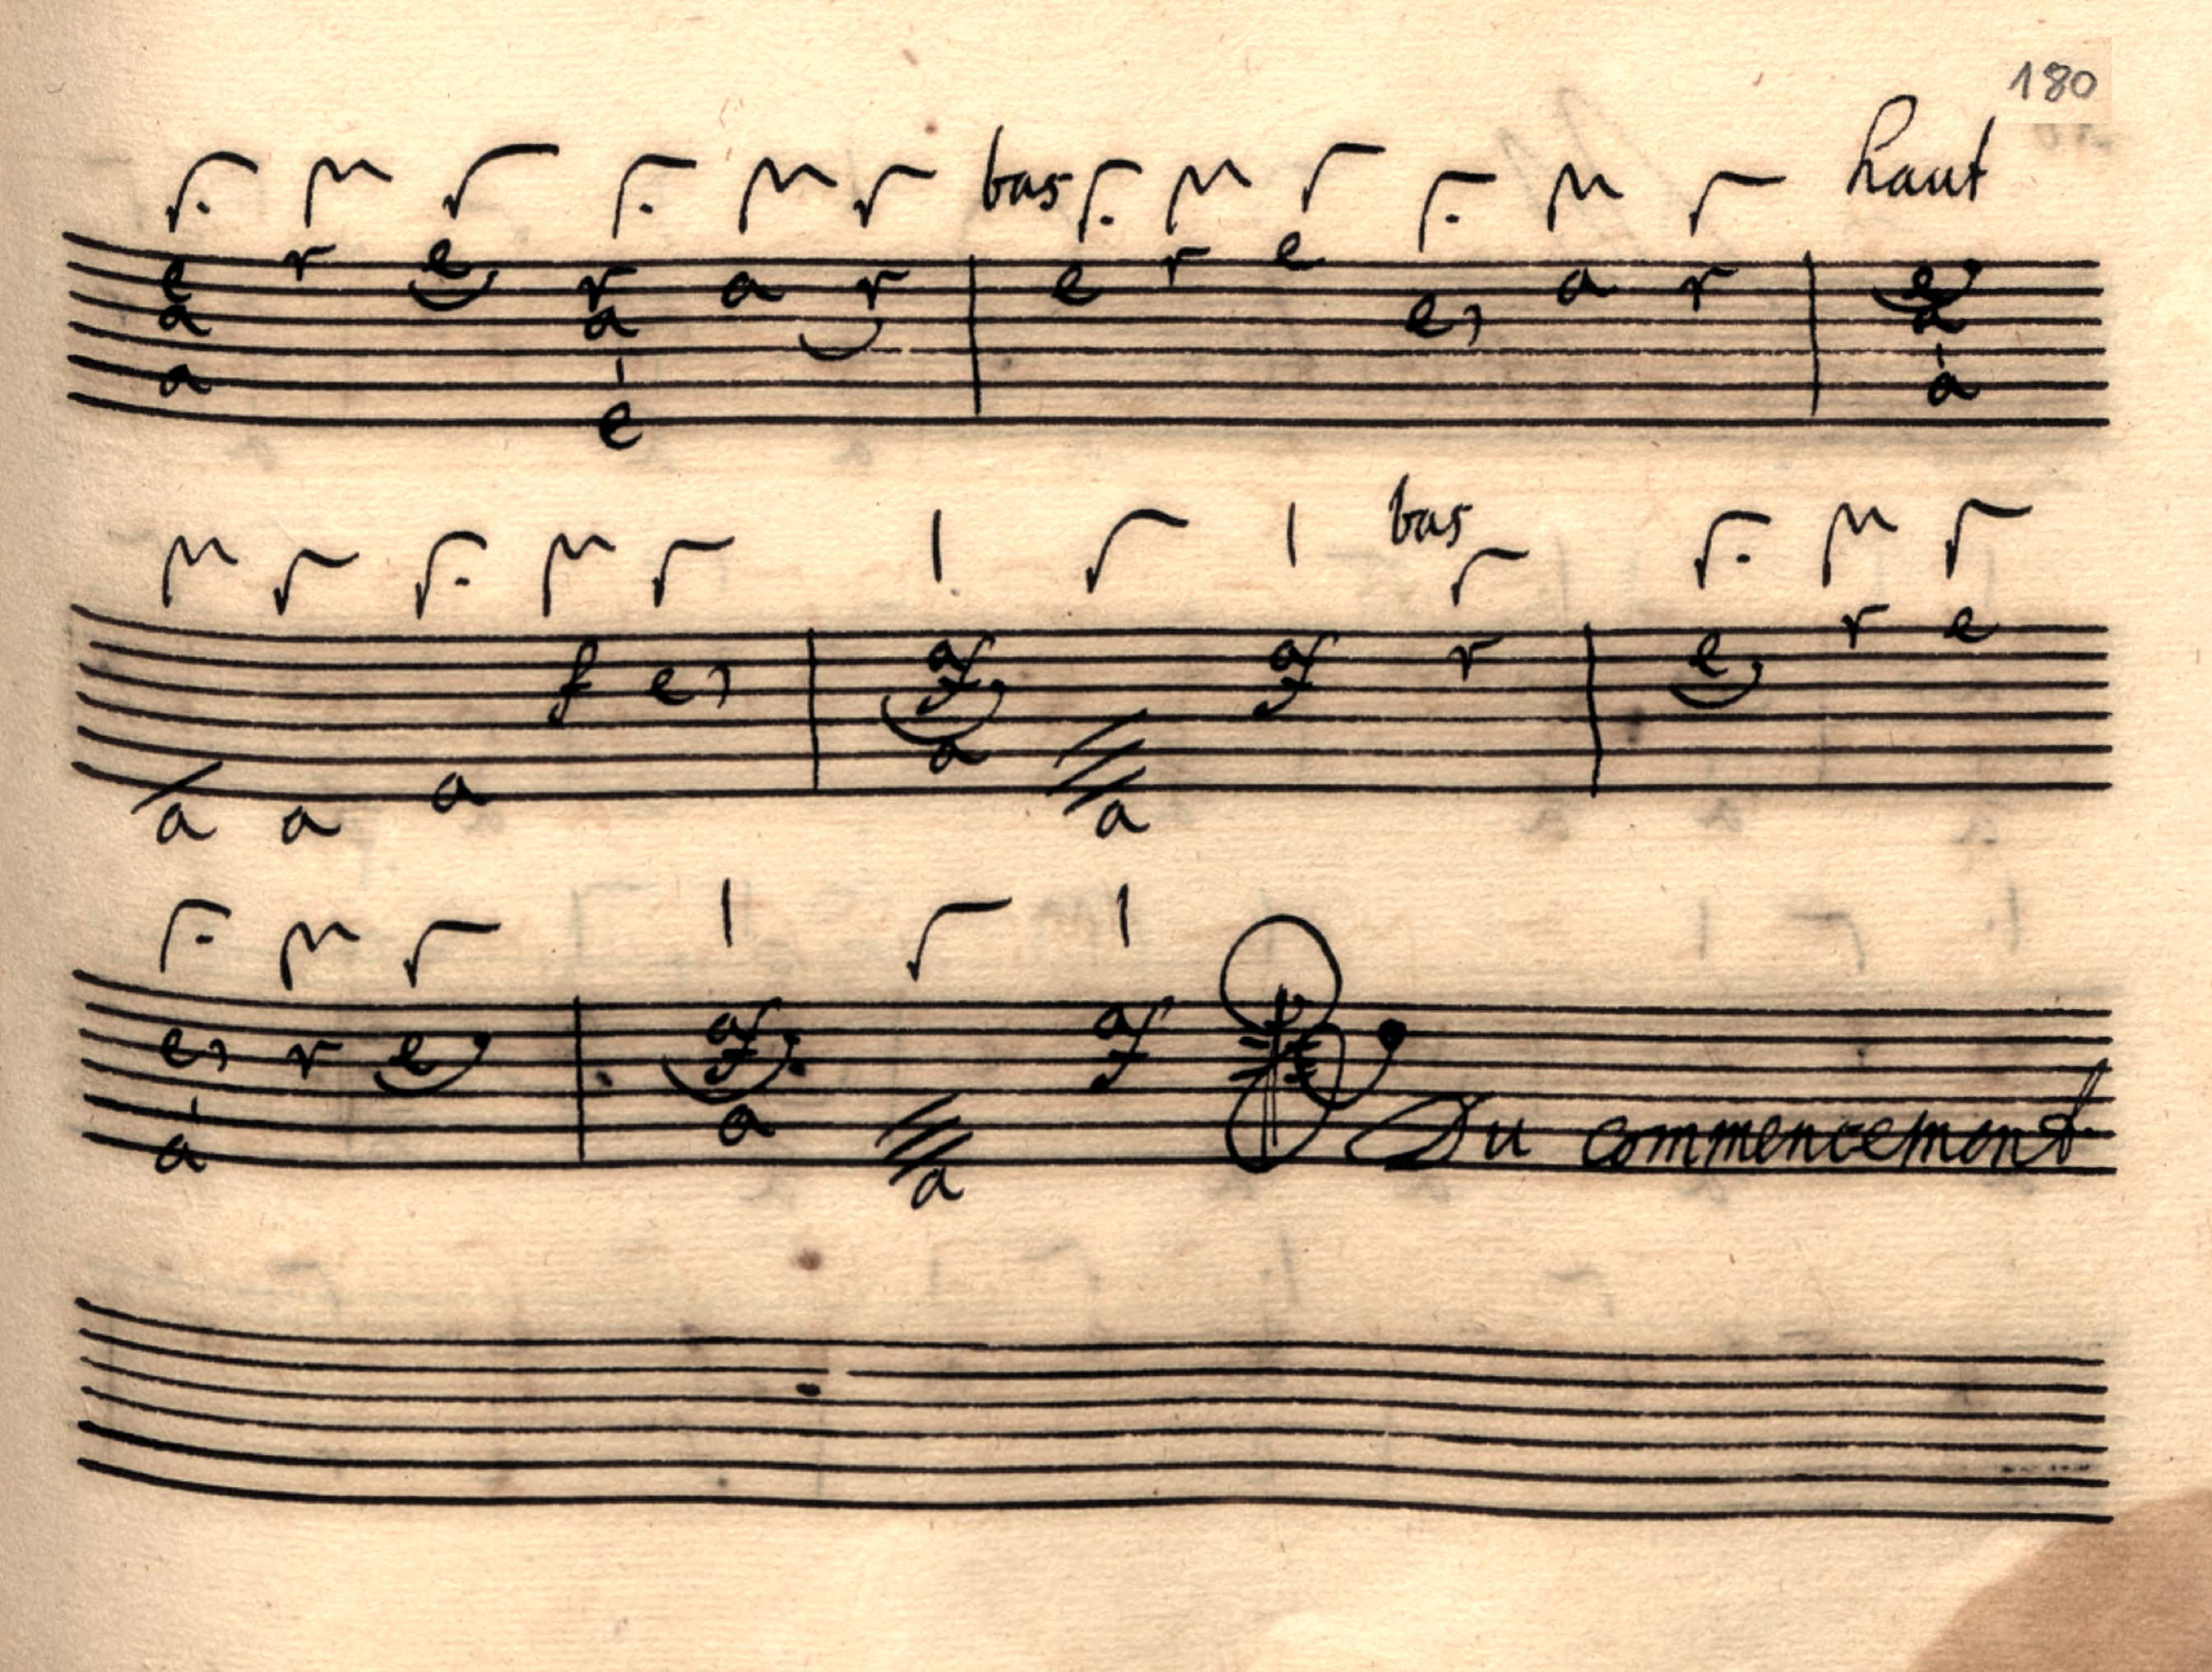 180
bas haut
e r e r a r e r e e, a r e
a a a
a e a
bas
f e, a f a f r e r e
a a a a a
e, r e a f a f
a a a
Du commencement